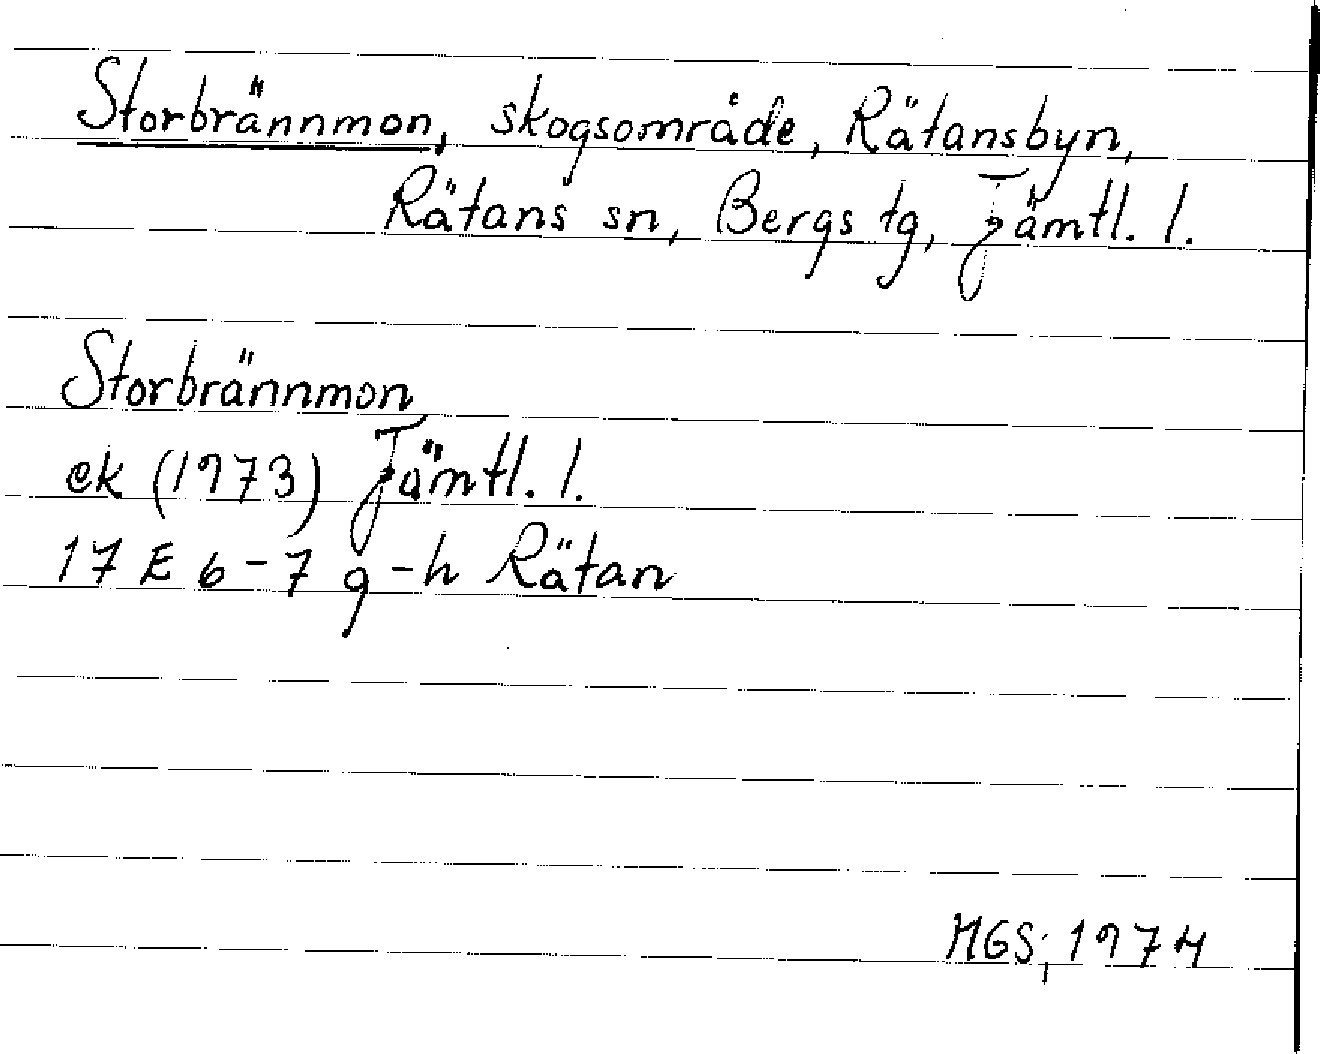 Storbrännmon, skogsområde, Rätansbyn,
Rätans sn, Bergs tg, Jämtl. l.
Storbrännmon
ek (1973) Jämtl. l.
17 E 6-7 g-h Rätan
MGS; 1974